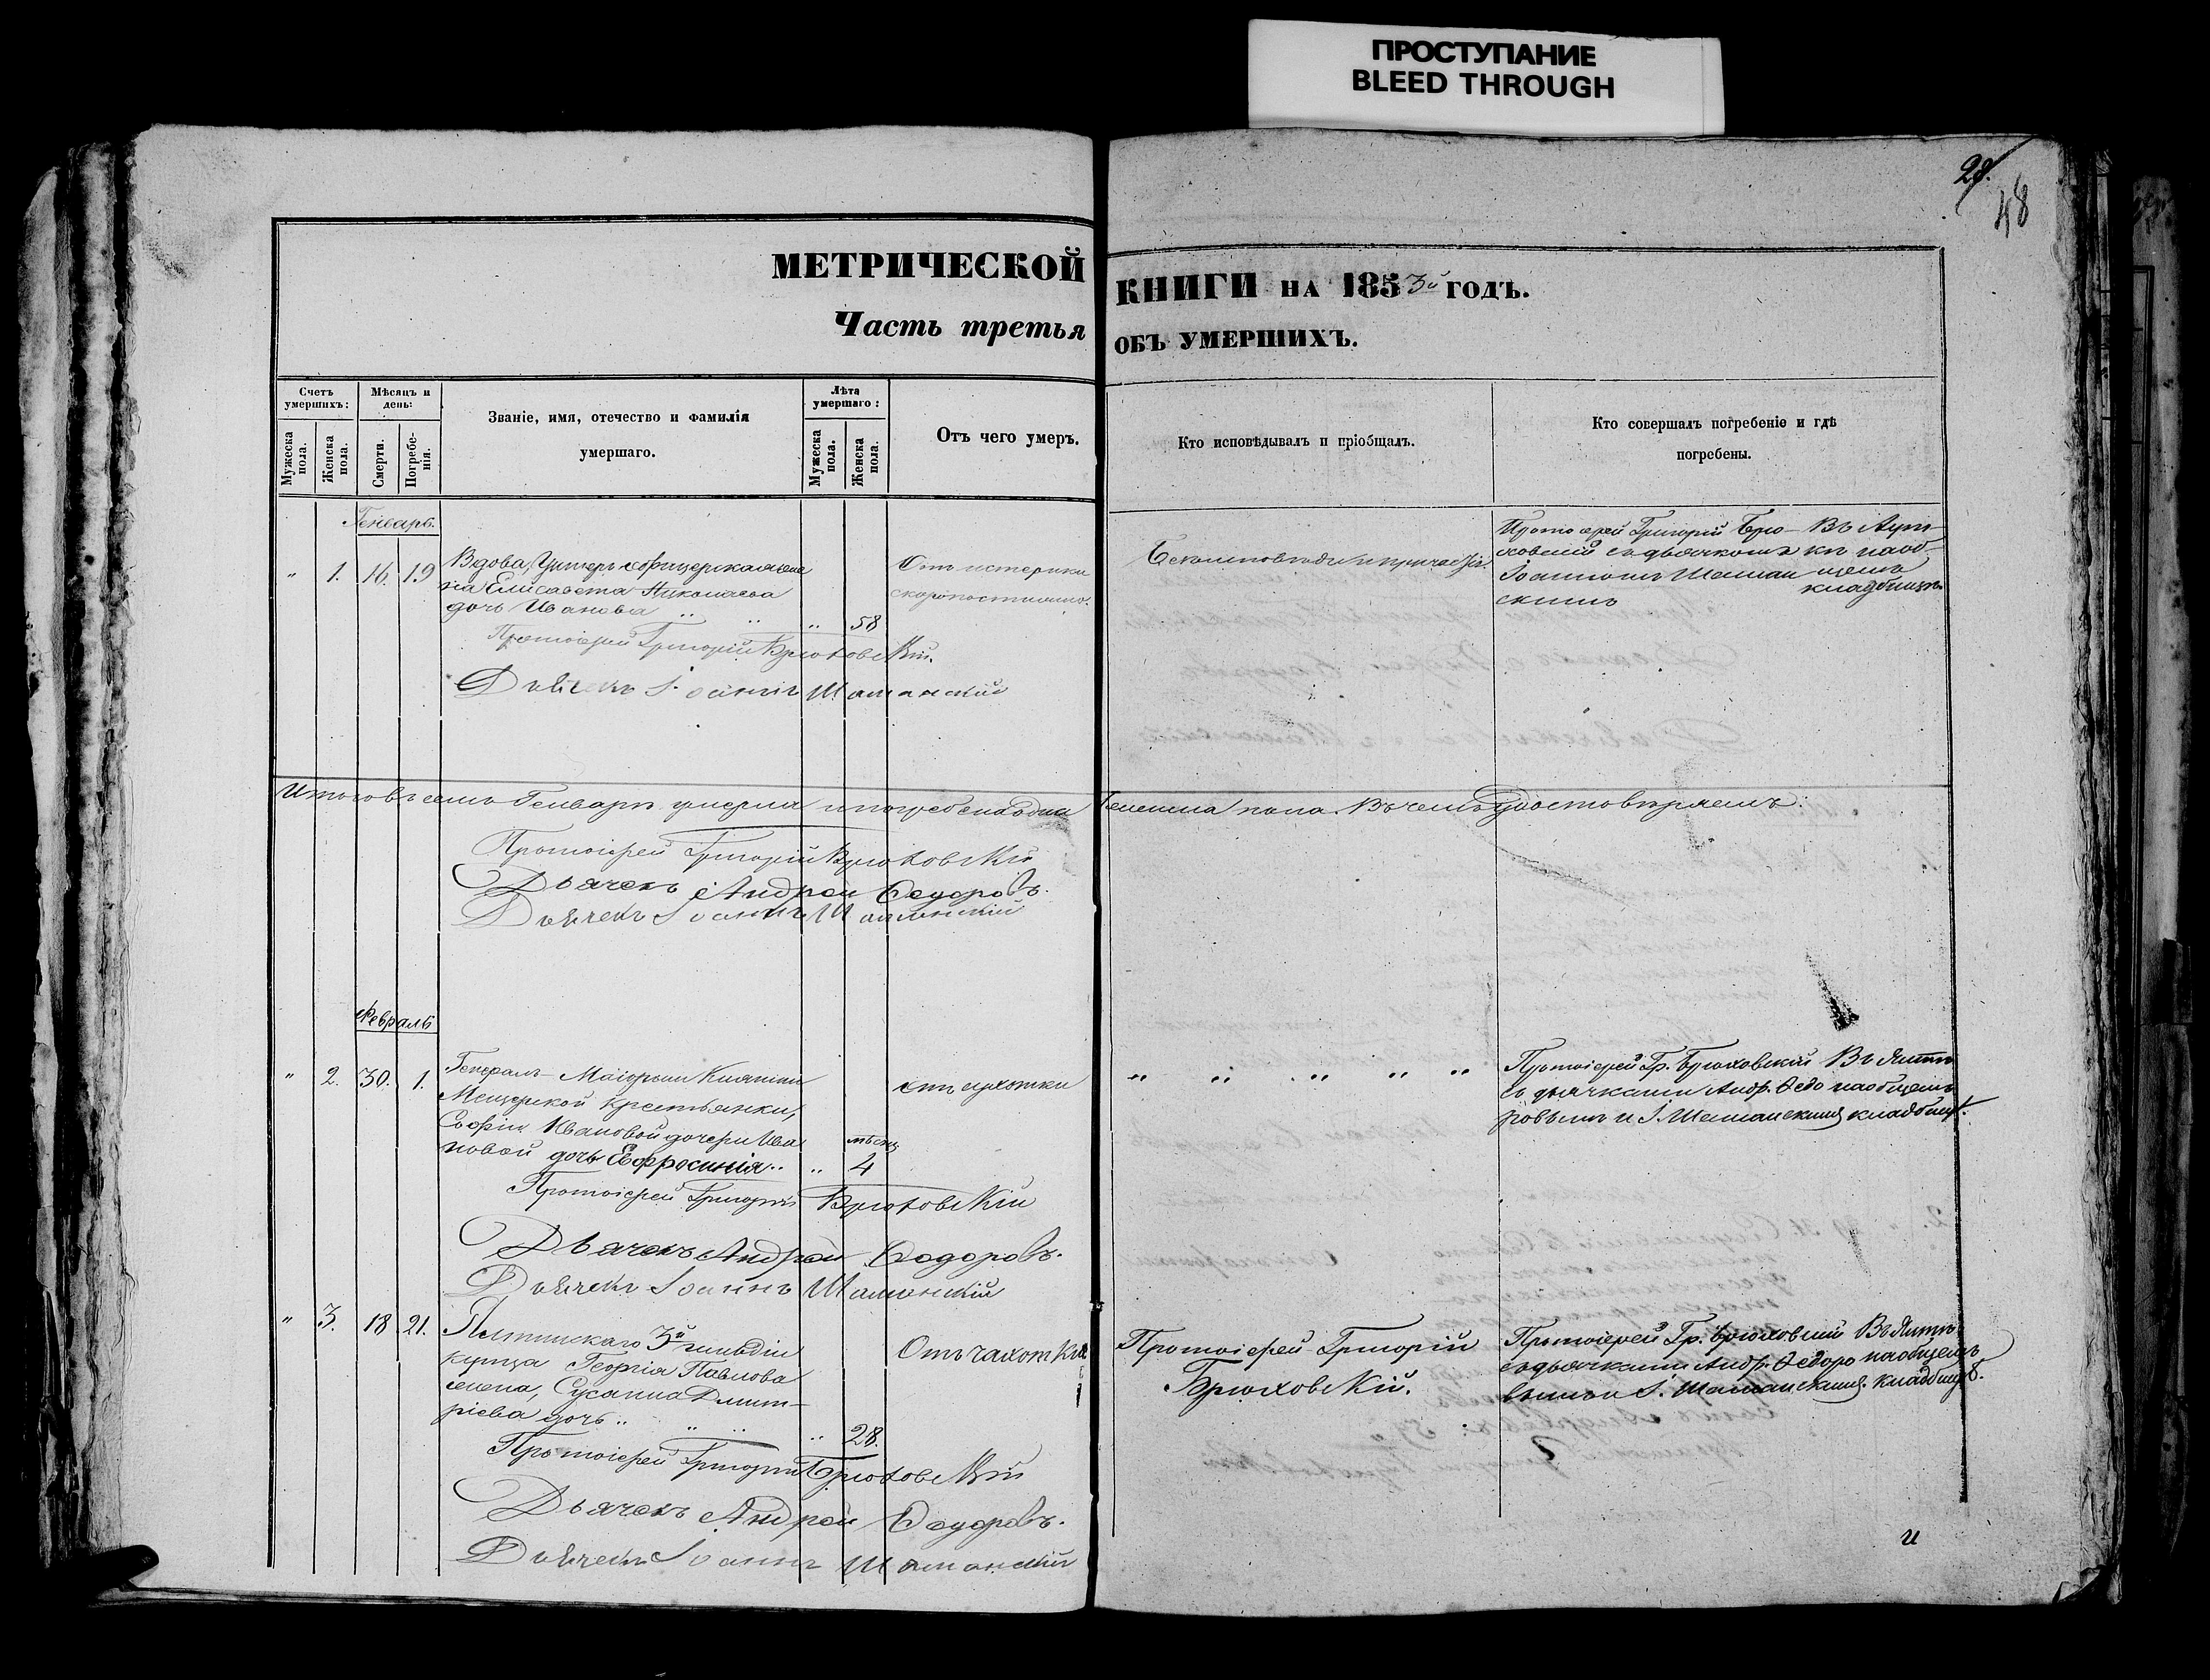 ПРОСТУПАНИЕ
BLEED THROUGH
28.
48
МЕТРИЧЕСКОЙ КНИГИ НА 1853й ГОДЪ.
Часть третья ОБЪ УМЕРШИХЪ.
Счетъ умершихъ:
Мужеска пола.
Женска пола.
Мѣсяцъ и день:
Смерти.
Погребенія.
Званіе, имя, отечество и фамилія
умершаго.
Лѣта умершаго:
Мужеска пола.
Женска пола.
Отъ чего умеръ.
Кто исповѣдывалъ и пріобщалъ.
Кто совершалъ погребеніе и гдѣ
погребены.
Генварь.
" 1. 16. 19
Вдова, Унтеръ-офицерская же
на Елисавета Николаева
дочь Иванова " " " 58
Отъ истерики
скоропостижно.
Безъ исповѣди и причастія.
Протоіерей Григорій Брю-
ховскій съ дьячкомъ
Іоанномъ Шаман
скимъ
Въ Аут-
кѣ на об-
щемъ
кладбищѣ.
Протоіерей Григорій Брюховскій.
Дьячекъ Іоаннъ Шаманскій
Итого въ семъ Генварѣ умерла и погребена одна женска пола. Въ чемъ удостовѣряемъ:
Протоіерей Григорій Брюховскій
Дьячекъ Андрей Ѳедоровъ.
Дьячекъ Іоаннъ Шаманскій
Февраль
" 2. 30. 1.
Генералъ-Маіорши Княгини
Мещерской крестьянки,
Софіи Ивановой дочери Ива
новой дочь Евфросинія " " мѣсяц 4
отъ сухотки
" " " " "
Протоіерей Гр. Брюховскій
съ дьячками Андр. Ѳедо
ровымъ и І. Шаманскимъ
Въ Ялтѣ
на общемъ
кладбищѣ.
Протоіерей Григорій Брюховскій
Дьячекъ Андрей Ѳедоровъ.
Дьячекъ Іоаннъ Шаманскій
" 3. 18 21.
Ялтинскаго 3й гильдіи
купца Георгія Павлова
жена, Сусанна Дмит-
ріева дочь " " " " 28.
Отъ чахотки
Протоіерей Григорій
Брюховскій.
Протоіерей Гр. Брюховскій
съ дьячками Андр. Ѳедоро
вымъ и І. Шаманскимъ.
Въ Ялтѣ
на общемъ
кладбищѣ.
Протоіерей Григорій Брюховскій
Дьячекъ Андрей Ѳедоровъ.
Дьячекъ Іоаннъ Шаманскій
и